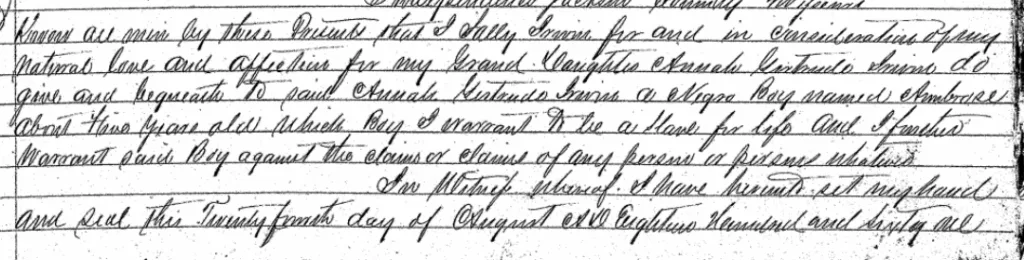 Independence Jackson County Missouri
Know all men by these Presents that I Sally Irwin for and in consideration of my
natural love and affection for my Grand Daughter Annah Gertrude Irwin do
give and bequeath to said Annah Gertrude Irwin a Negro Boy named Ambrose
about two years old which Boy I warrant to be a slave for life and I further
warrant said Boy against the claim or claims of any person or persons whatever
In Witness whereof I have hereunto set my hand
and seal this Twenty fourth day of August AD Eighteen Hundred and Sixty one